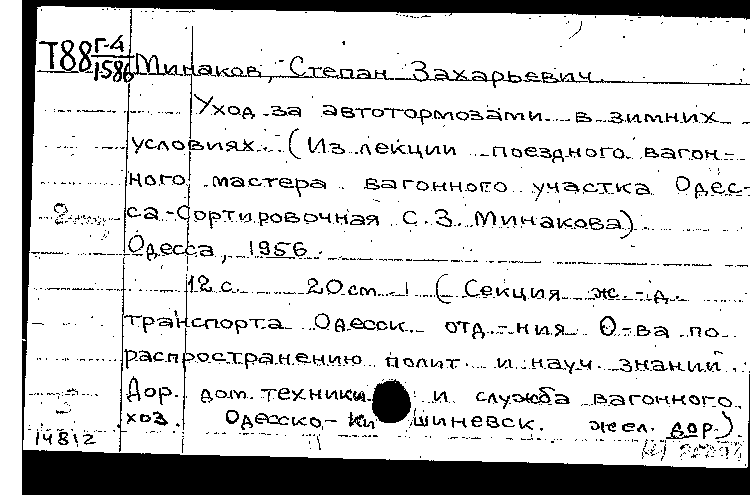 Т88 Г-4
1586 Минаков, Степан Захарьевич.
Уход за автотормозами в зимних
условиях. (Из лекции поездного вагон-
ного мастера вагонного участка Одес-
са-Сортировочная С.З. Минакова)
Одесса, 1956.
12 с. 20 cm. (Секция ж.-д.
транспорта Одесск. отд-ния О-ва по
распространению полит. и науч. знаний.
Дор. дом техники и служба вагонного
хоз. Одесско-Кишиневск. жел. дор.)
14812